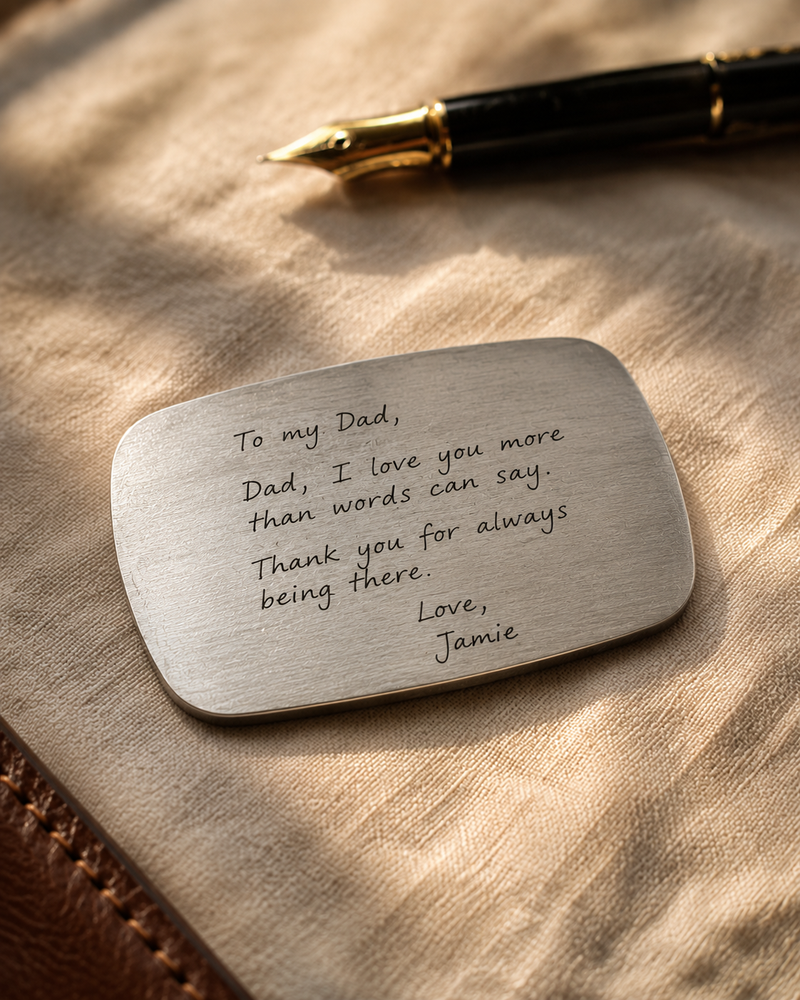 To my Dad,
Dad, I love you more
than words can say.
Thank you for always
being there.
Love,
Jamie